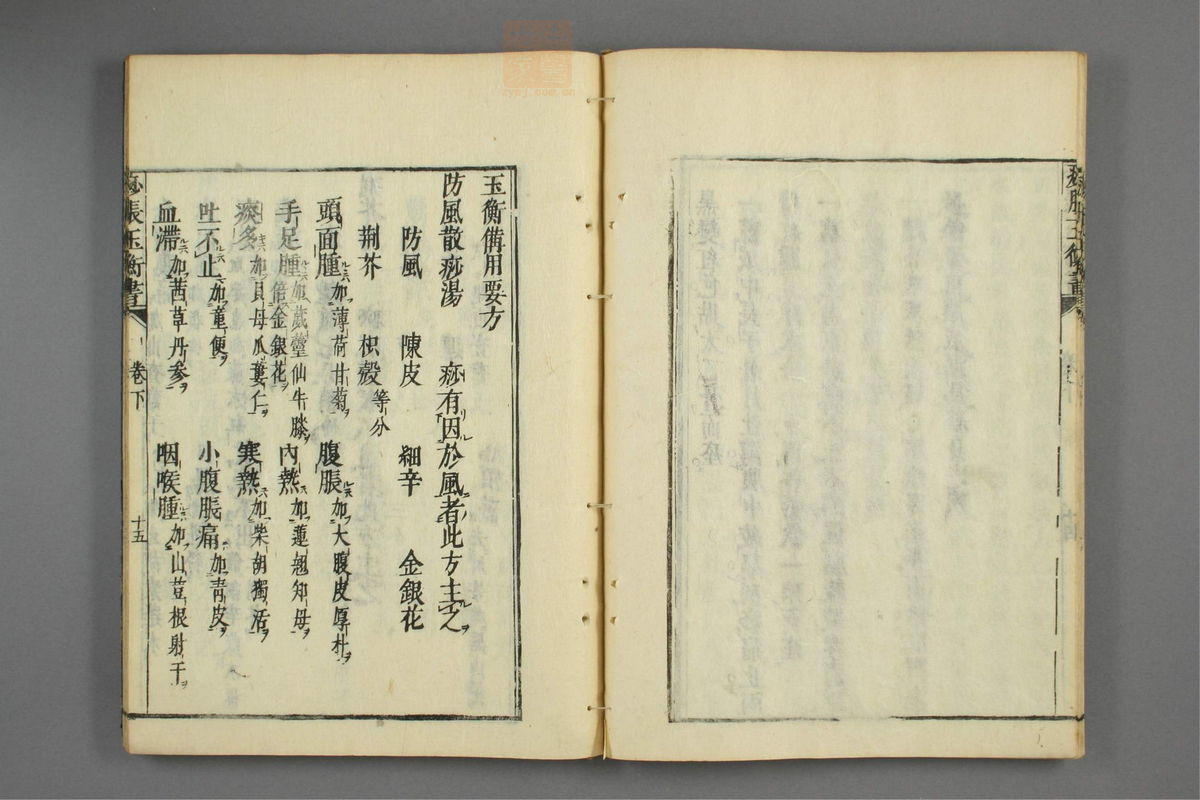 玉衡備用要方
防風散痧湯　痧有因於風者此方主之
防風　陳皮　細辛　金銀花
荊芥　枳殼等分
頭面腫加薄荷甘菊　腹脹加大腹皮厚朴
手足腫加葳靈仙牛膝倍金銀花　內熱加蓮翹知母
痰多加貝母瓜蔞仁　寒熱加柴胡獨活
吐不止加童便　小腹脹痛加青皮
血滯加茜草丹參　咽喉腫加山荳根射干
痧脹玉衡書　卷下　十五
痧脹玉衡書